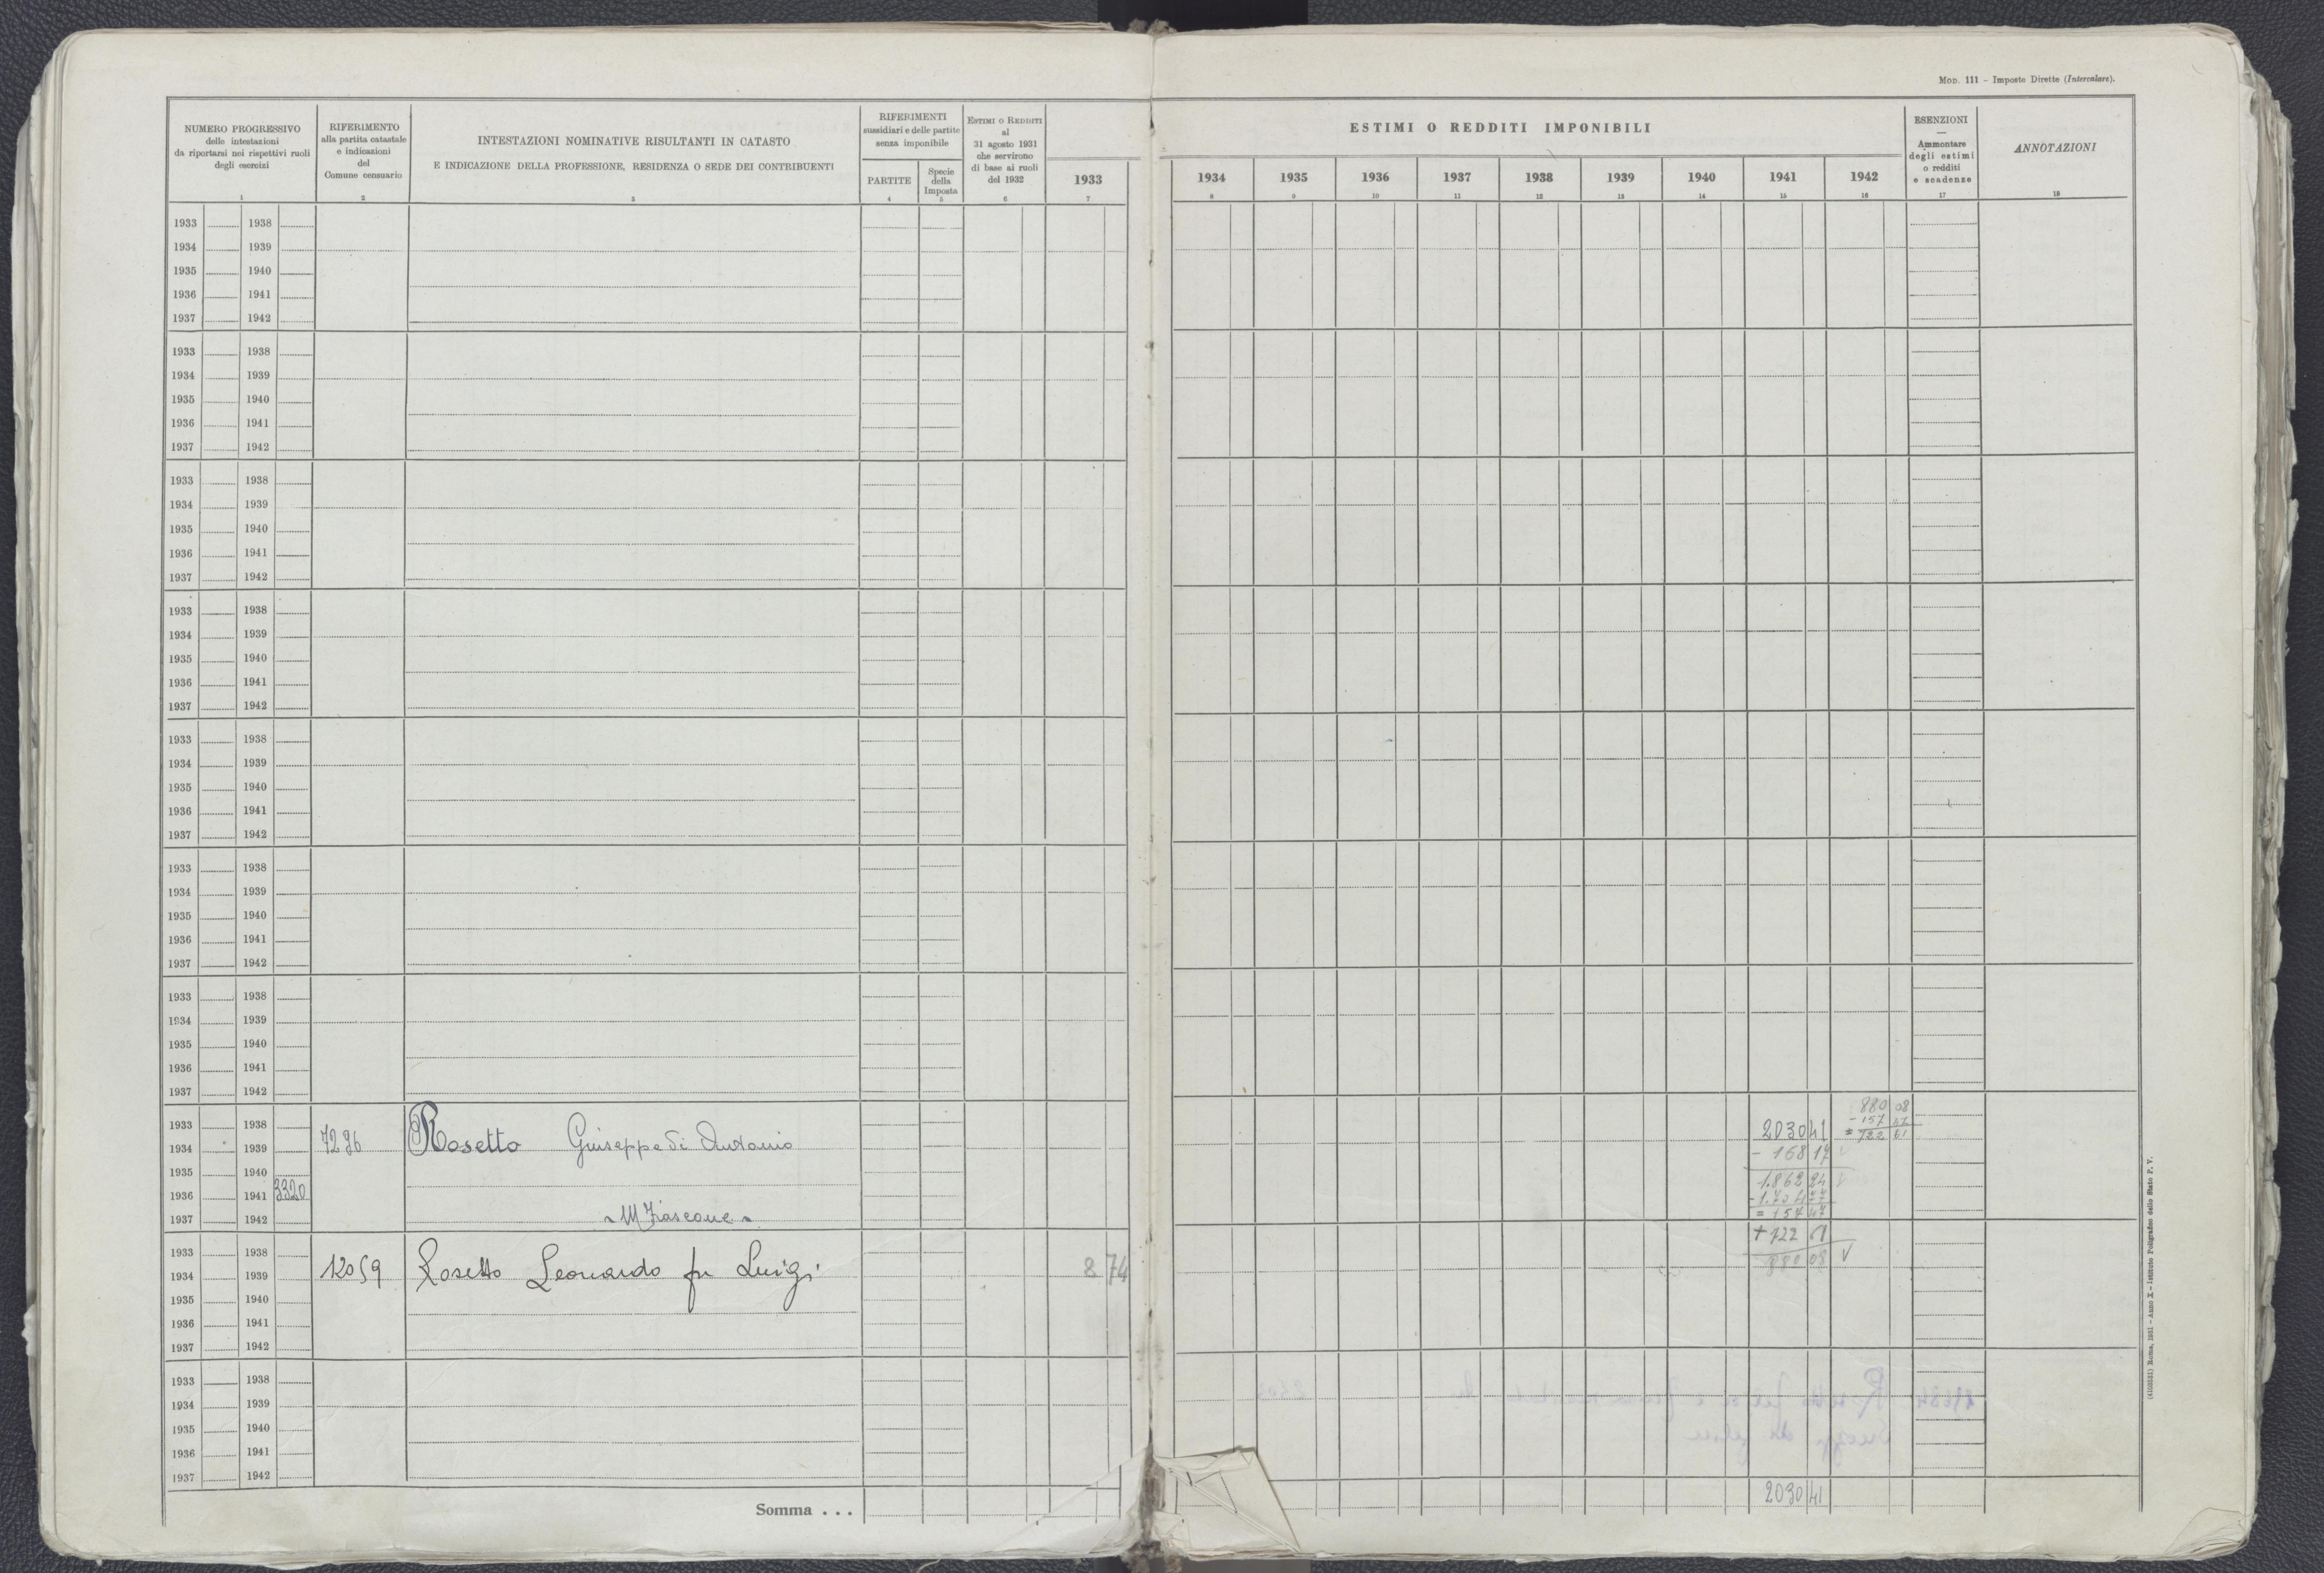 Mod. 111 - Imposte Dirette (Intercalare).
NUMERO PROGRESSIVO
delle intestazioni
da riportarsi nei rispettivi ruoli
degli esercizi
1
RIFERIMENTO
alla partita catastale
e indicazioni
del
Comune censuario
2
INTESTAZIONI NOMINATIVE RISULTANTI IN CATASTO
E INDICAZIONE DELLA PROFESSIONE, RESIDENZA O SEDE DEI CONTRIBUENTI
3
RIFERIMENTI
sussidiari e delle partite
senza imponibile
PARTITE
4
Specie
della
Imposta
5
Estimi o Redditi
al
31 agosto 1931
che servirono
di base ai ruoli
del 1932
6
1933
7
ESTIMI O REDDITI IMPONIBILI
1934 1935 1936 1937 1938 1939 1940 1941 1942
8 9 10 11 12 13 14 15 16
ESENZIONI
—
Ammontare
degli estimi
o redditi
e scadenze
17
ANNOTAZIONI
18
1933 1938
1934 1939
1935 1940
1936 1941
1937 1942
1933 1938
1934 1939
1935 1940
1936 1941
1937 1942
1933 1938
1934 1939
1935 1940
1936 1941
1937 1942
1933 1938
1934 1939
1935 1940
1936 1941
1937 1942
1933 1938
1934 1939
1935 1940
1936 1941
1937 1942
1933 1938
1934 1939
1935 1940
1936 1941
1937 1942
1933 1938
1934 1939
1935 1940
1936 1941
1937 1942
1933 1938 880 08
1934 1939 7296 Rosetto Giuseppe di Antonio 2030 41 - 157 47
= 722 61
1935 1940 - 168 17
1936 1941 3320 1.862 24
1937 1942 = 157 47
1933 1938 + 722 61
1934 1939 12059 Rosetto Leonardo fu Luigi 8 74 880 08
1935 1940
1936 1941
1937 1942
1933 1938
1934 1939
1935 1940
1936 1941
1937 1942
Somma . . . 2030 41
(4103551) Roma, 1931 - Anno X - Istituto Poligrafico dello Stato P. V.